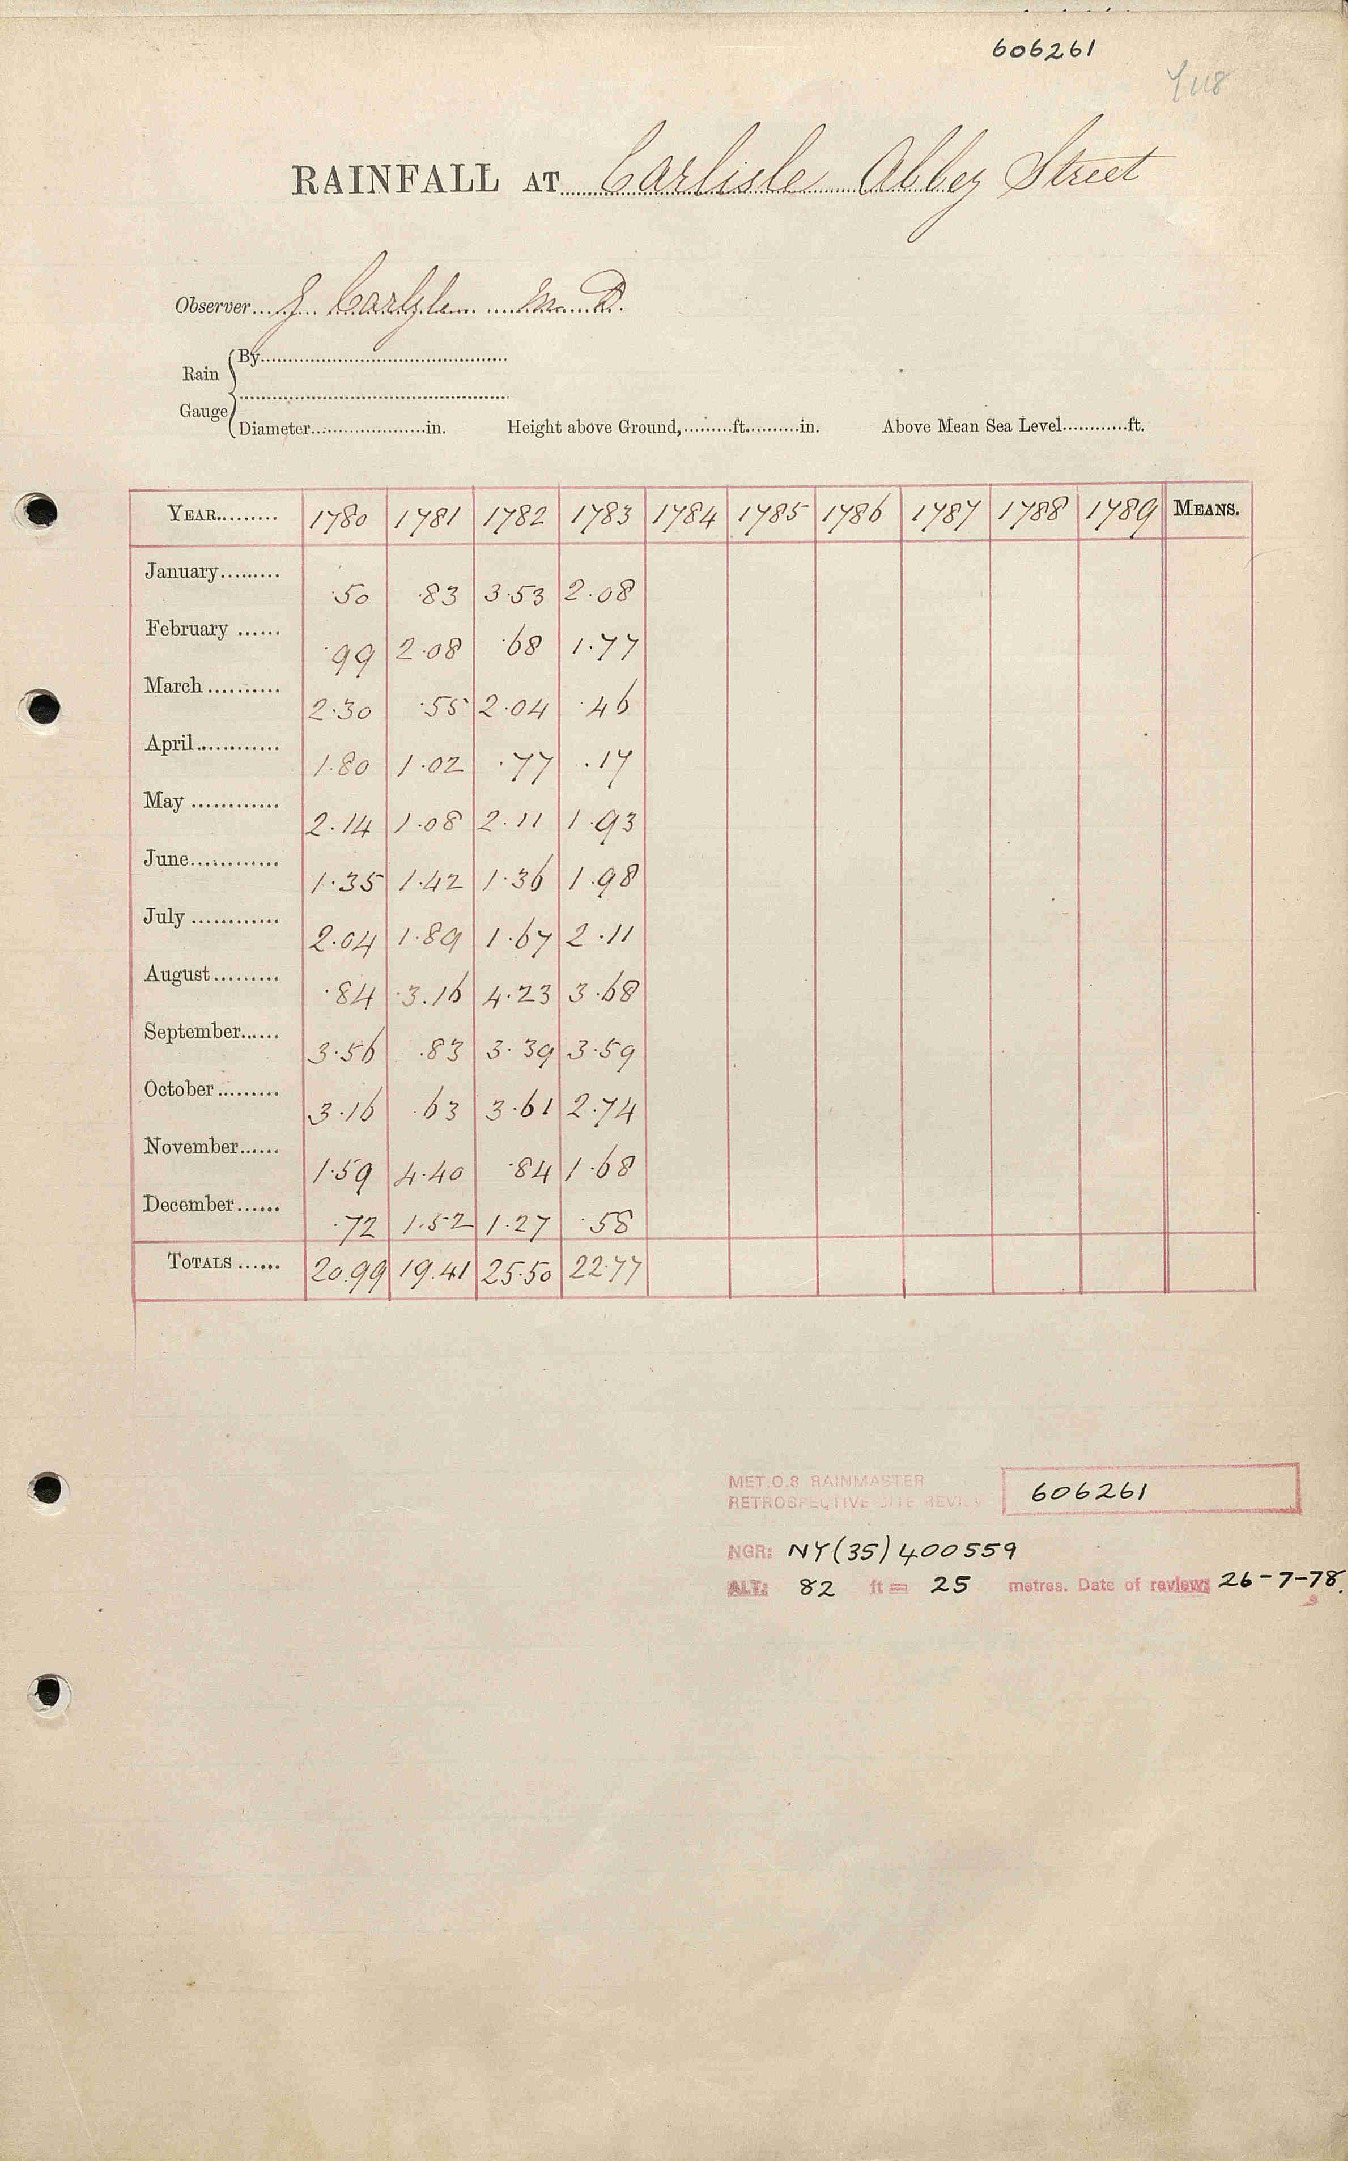 606261
RAINFALL AT Carlisle Abbey Street
Observer J Carlyle M.D.
Rain Gauge
By
Diameter in. Height above Ground, ft. in. Above Mean Sea Level ft.
YEAR 1780 1781 1782 1783 1784 1785 1786 1787 1788 1789 MEANS.
January .50 .83 3.53 2.08
February .99 2.08 .68 1.77
March 2.30 .55 2.04 .46
April 1.80 1.02 .77 .17
May 2.14 1.08 2.11 1.93
June 1.35 1.42 1.36 1.98
July 2.04 1.89 1.67 2.11
August .84 3.16 4.23 3.68
September 3.56 .83 3.39 3.59
October 3.16 .63 3.61 2.74
November 1.59 4.40 .84 1.68
December .72 1.52 1.27 .58
TOTALS 20.99 19.41 25.50 22.77
MET.O.8 RAINMASTER
RETROSPECTIVE SITE REVIEW 606261
NGR: NY(35)400559
ALT: 82 ft = 25 metres. Date of review: 26-7-78.